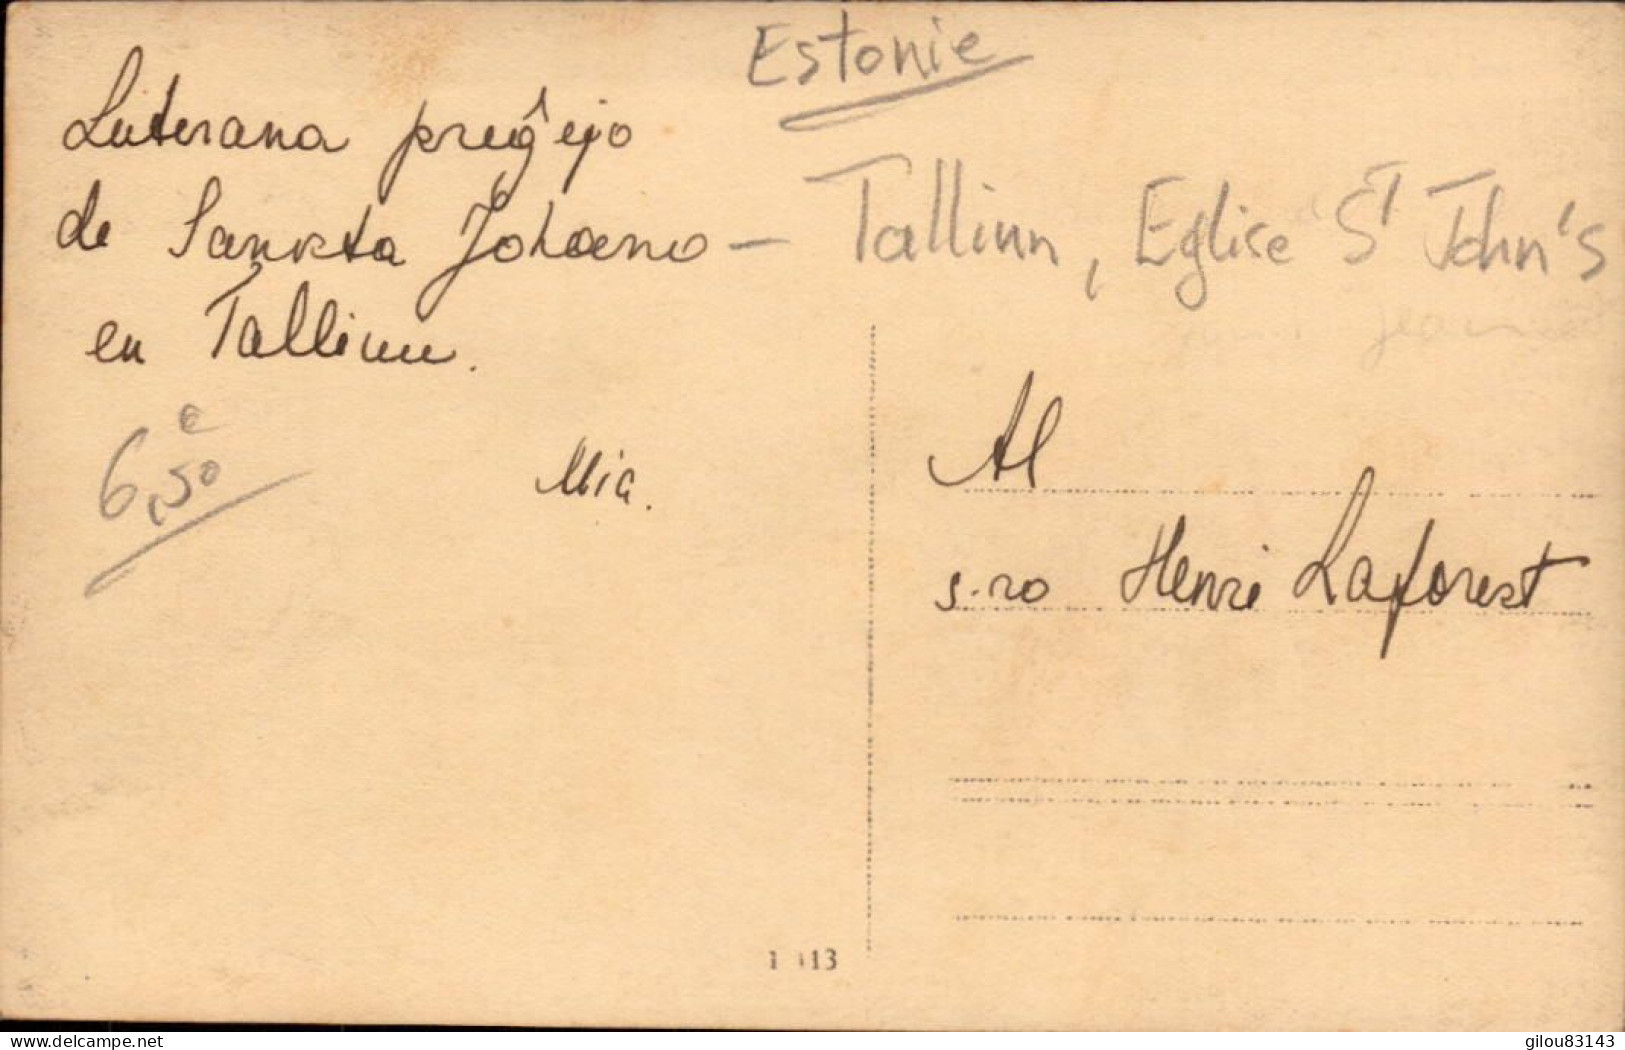 Estonie
Luterana preĝejo
de Sankta Johano – Tallinn, Eglise St John's
en Tallinn.
6,50 €
Mia.
Al
s-ro Henri Laforest
www.delcampe.net
gilou83143